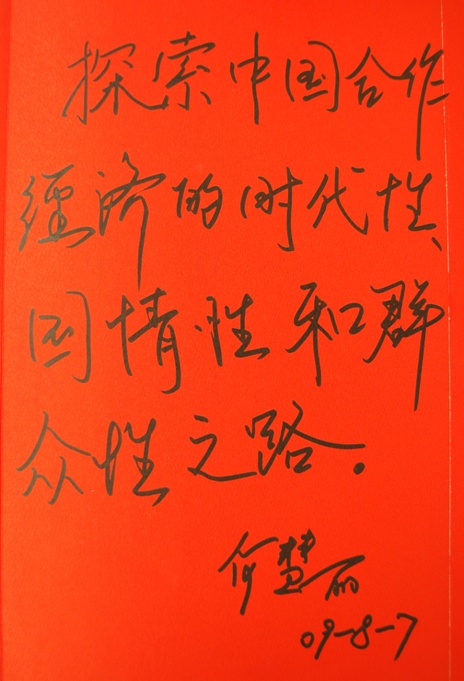 探索中国合作
经济的时代性、
国情性和群
众性之路。
何慧丽
09-8-7